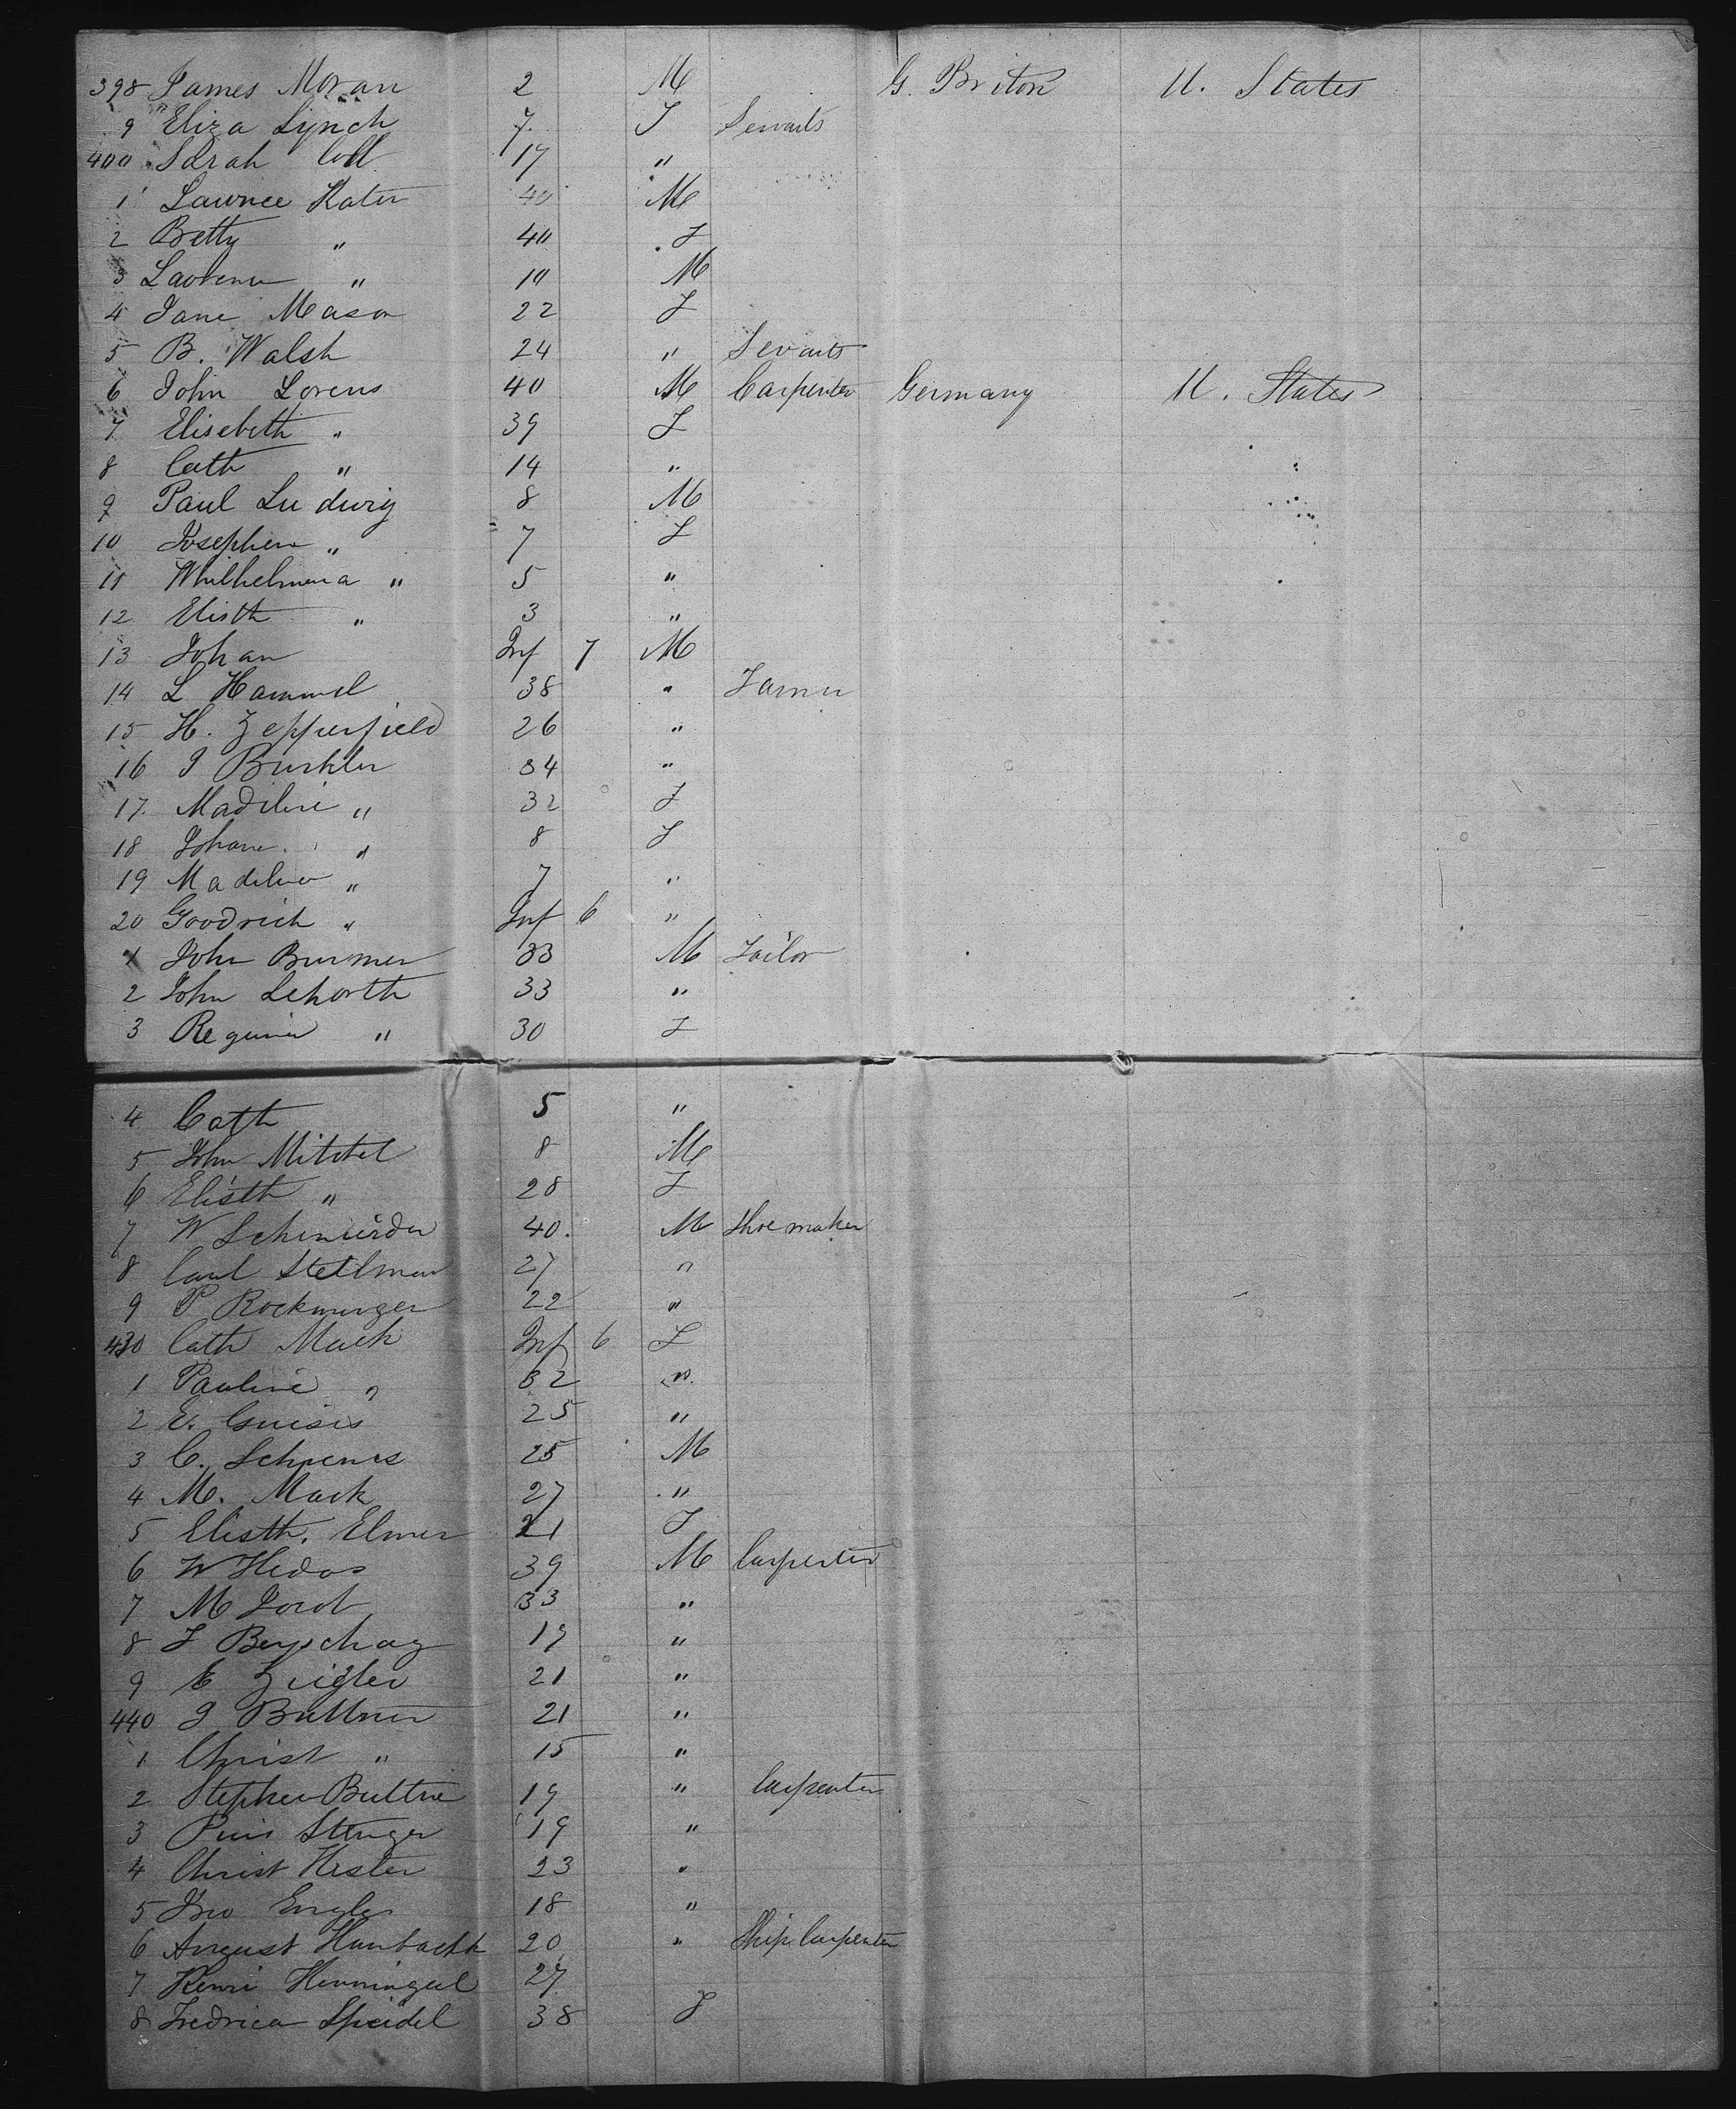 398 James Moran 2 M G. Briton U. States
9 Eliza Lynch 7 F Servants
400 Sarah Coll 17 "
1 Lawnce Kater 40 M
2 Betty " 40 F
3 Lawrence " 10 M
4 Jane Mason 22 F
5 B. Walsh 24 " Servants
6 John Lorens 40 M Carpenter Germany U. States
7 Elisebeth " 39 F
8 Cath " 14 "
9 Paul Ludwig 8 M
10 Josephen " 7 F
11 Whilhelmena " 5 "
12 Elisth " 3 "
13 Johan Inf 7 M
14 L Hammel 38 " Farmer
15 H. Zepperfield 26 "
16 J Burkler 34 "
17 Madilini " 32 F
18 Johane " 8 F
19 Madelene " 7 "
20 Goodrich " Inf 6 "
1 John Burmer 33 M Tailor
2 John Lehorth 33 "
3 Regina " 30 F
4 Cath 5 "
5 John Mitchel 8 M
6 Elisth " 28 F
7 W 40. M Shoemaker
8 Carl Stellman 27 "
9 P Rockmurger 22 "
430 Cath Mack Inf 6 F
1 Pauline " 32 "
2 E. 25 "
3 C. 25 M
4 M. Mack 27 "
5 Elisth. Elmer 21 F
6 W Hedos 39 M Carpenter
7 M 33 "
8 F Beyschag 19 "
9 E Zeigler 21 "
440 J Buttner 21 "
1 Christ " 15 "
2 Stephen Buttne 19 " Carpenter
3 Pius Stenger 19 "
4 Christ Hesler 23 "
5 Jno Engles 18 "
6 August Hanbachk 20 " Ship Carpenter
7 Henri Henningeel 27
8 Fredrica Speidel 38 F